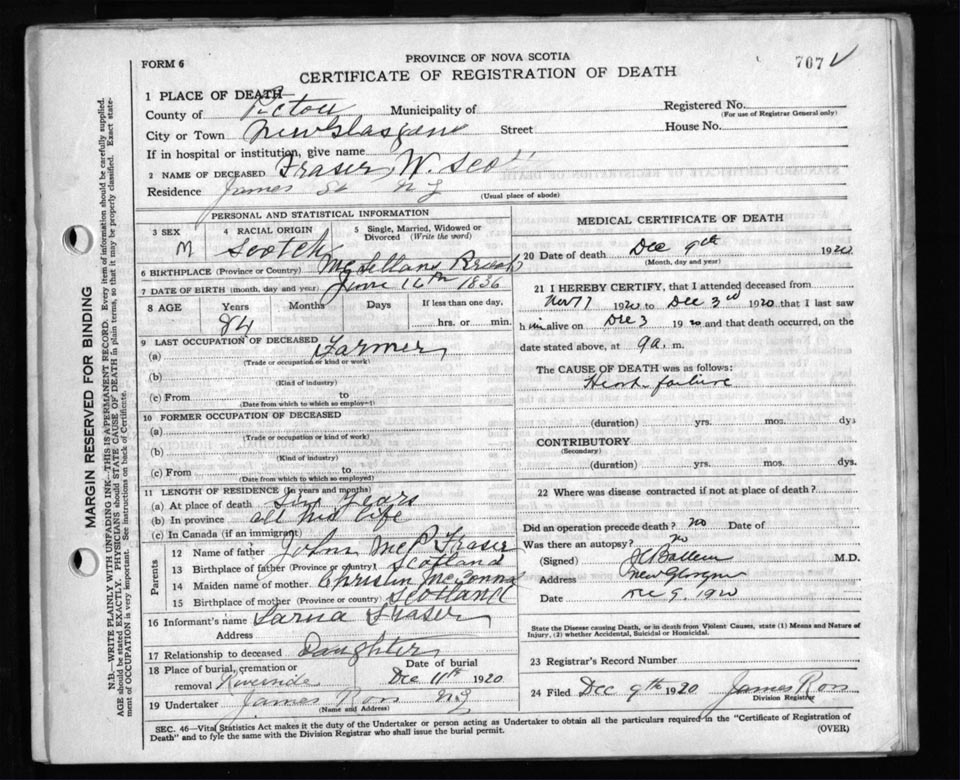 FORM 6
PROVINCE OF NOVA SCOTIA
CERTIFICATE OF REGISTRATION OF DEATH
707
1 PLACE OF DEATH
County of Pictou Municipality of
Registered No.
(For use of Registrar General only)
City or Town New Glasgow Street House No.
If in hospital or institution, give name
2 NAME OF DECEASED Fraser, W. Scott
Residence James St N G
(Usual place of abode)
PERSONAL AND STATISTICAL INFORMATION
3 SEX M
4 RACIAL ORIGIN Scotch
5 Single, Married, Widowed or Divorced (Write the word)
6 BIRTHPLACE (Province or Country) McLellans Brook
7 DATE OF BIRTH (month, day and year) June 16th 1836
8 AGE Years 84 Months Days If less than one day, hrs. or min.
9 LAST OCCUPATION OF DECEASED
(a) Farmer
(Trade or occupation or kind or work)
(b)
(Kind of industry)
(c) From to
(Date from which to which so employed)
10 FORMER OCCUPATION OF DECEASED
(a)
(Trade or occupation or kind of work)
(b)
(Kind of industry)
(c) From to
(Date from which to which so employed)
11 LENGTH OF RESIDENCE (In years and months)
(a) At place of death Years
(b) In province all his life
(c) In Canada (if an immigrant)
Parents
12 Name of father John McP Fraser
13 Birthplace of father (Province or country) Scotland
14 Maiden name of mother Christin
15 Birthplace of mother (Province or country) Scotland
16 Informant's name Fraser
Address
17 Relationship to deceased Daughter
18 Place of burial, cremation or removal Riverside
Date of burial Dec 11th 1920
19 Undertaker James Ross N G
(Name and Address)
MEDICAL CERTIFICATE OF DEATH
20 Date of death Dec 9th 1920
(Month, day and year)
21 I HEREBY CERTIFY, that I attended deceased from
1920 to Dec 3rd 1920 that I last saw
him alive on Dec 3 1920 and that death occurred, on the
date stated above, at 9 a. m.
The CAUSE OF DEATH was as follows:
Heart failure
(duration) yrs. mos. dys
CONTRIBUTORY
(Secondary)
(duration) yrs. mos. dys.
22 Where was disease contracted if not at place of death?
Did an operation precede death? no Date of
Was there an autopsy? no
(Signed) M.D.
Address New Glasgow
Date Dec 9, 1920
State the Disease causing Death, or in death from Violent Causes, state (1) Means and Nature of
Injury, (2) whether Accidental, Suicidal or Homicidal.
23 Registrar's Record Number
24 Filed Dec 9th 1920 James Ross
Division Registrar
SEC. 46—Vital Statistics Act makes it the duty of the Undertaker or person acting as Undertaker to obtain all the particulars required in the "Certificate of Registration of
Death" and to fyle the same with the Division Registrar who shall issue the burial permit.
(OVER)
MARGIN RESERVED FOR BINDING
N.B.—WRITE PLAINLY WITH UNFADING INK—THIS IS A PERMANENT RECORD. Every item of information should be carefully supplied.
AGE should be stated EXACTLY. PHYSICIANS should STATE CAUSE OF DEATH in plain terms, so that it may be properly classified. Exact state-
ment of OCCUPATION is very important. See instructions on back of Certificate.